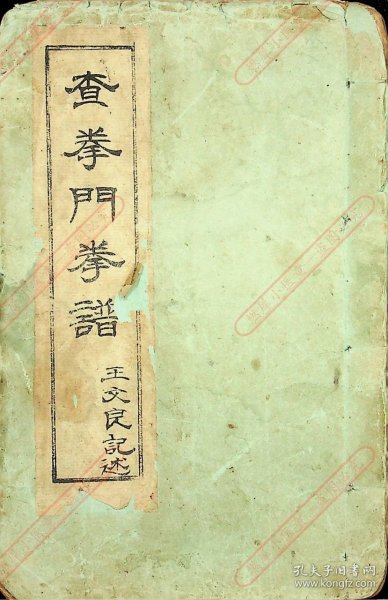 查拳門拳譜
王文良記述
孔夫子旧书网
www.kongfz.com